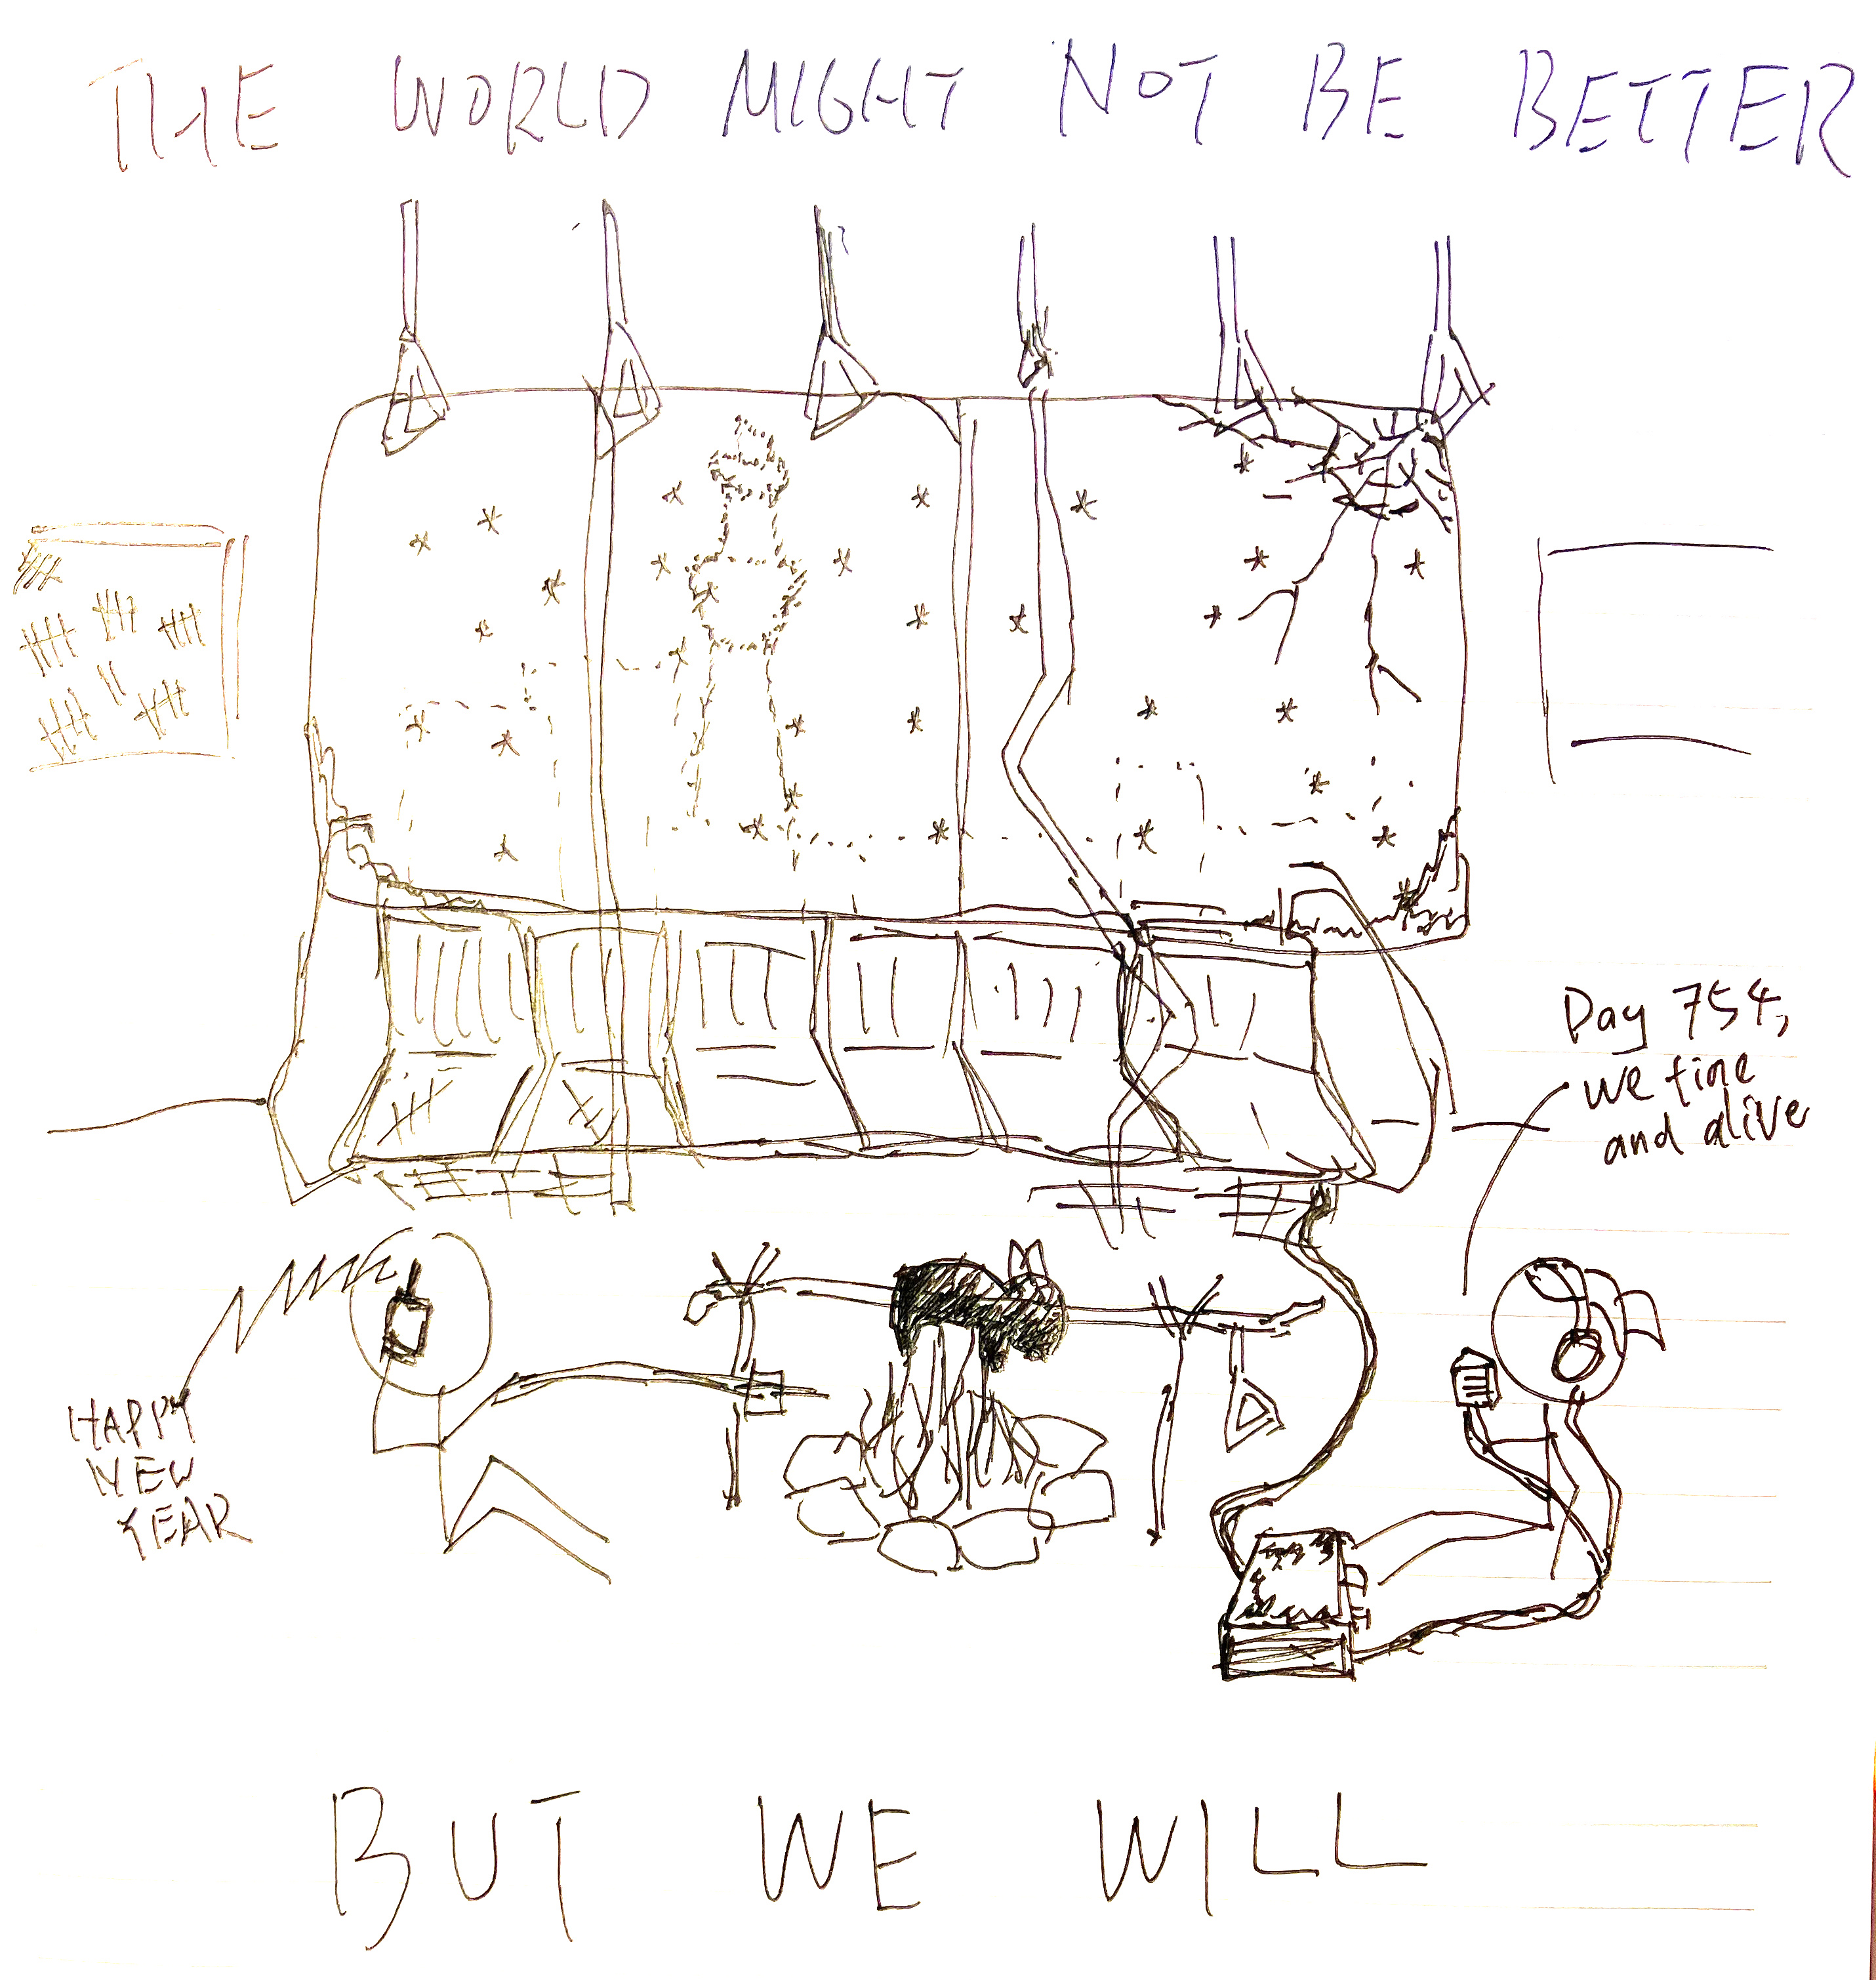 THE WORLD MIGHT NOT BE BETTER
Day 754,
we fine
and alive
HAPPY
NEW
YEAR
BUT WE WILL